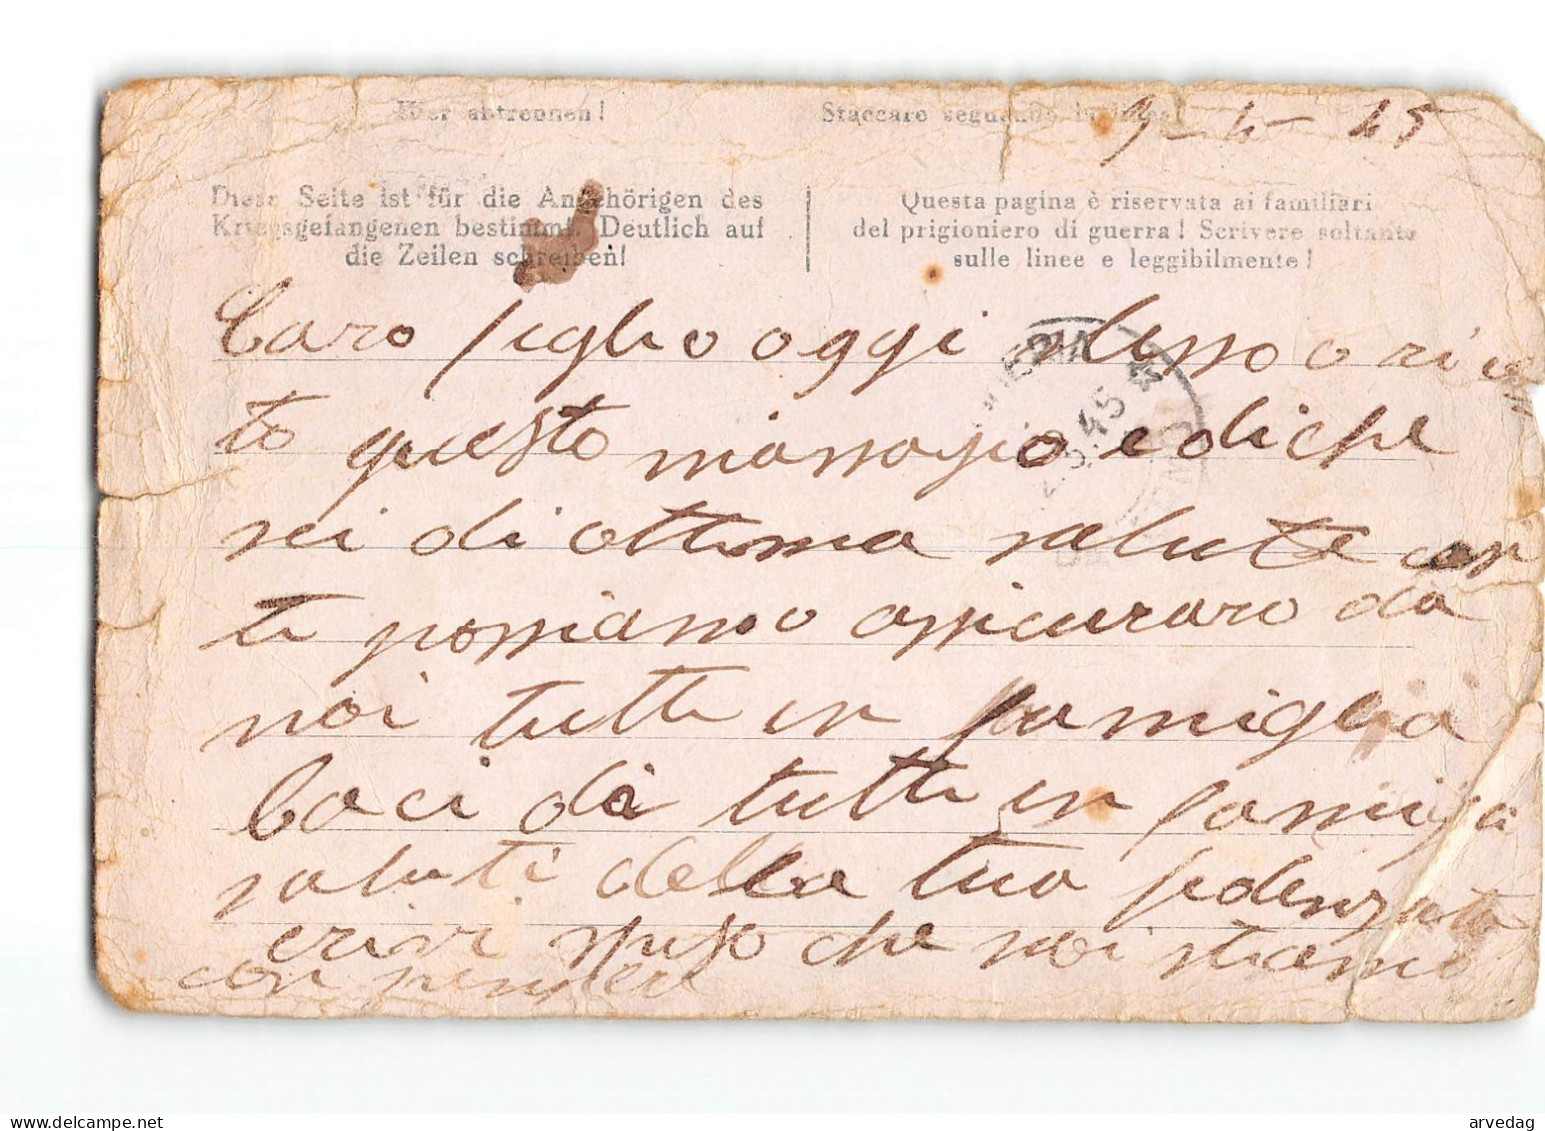 Hier abtrennen!
Staccare seguendo la linea!
9-4-45
Diese Seite ist für die Angehörigen des
Kriegsgefangenen bestimmt. Deutlich auf
die Zeilen schreiben!
Questa pagina è riservata ai familiari
del prigioniero di guerra! Scrivere soltanto
sulle linee e leggibilmente!
Caro figlio oggi stesso o ricevu
to questo massagio e di che
sei di ottoma salute con
ti possiamo assicuraro da
noi tutti in famiglia
baci da tutti in famiglia
saluti della tua fedenzata
crivi speso che noi stiamo
con pensiere
45